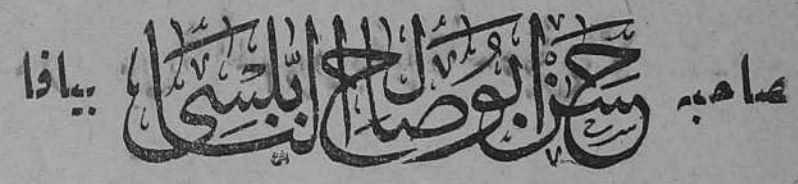 صاحبه حسن ابو صلاح النابلسي بيافا